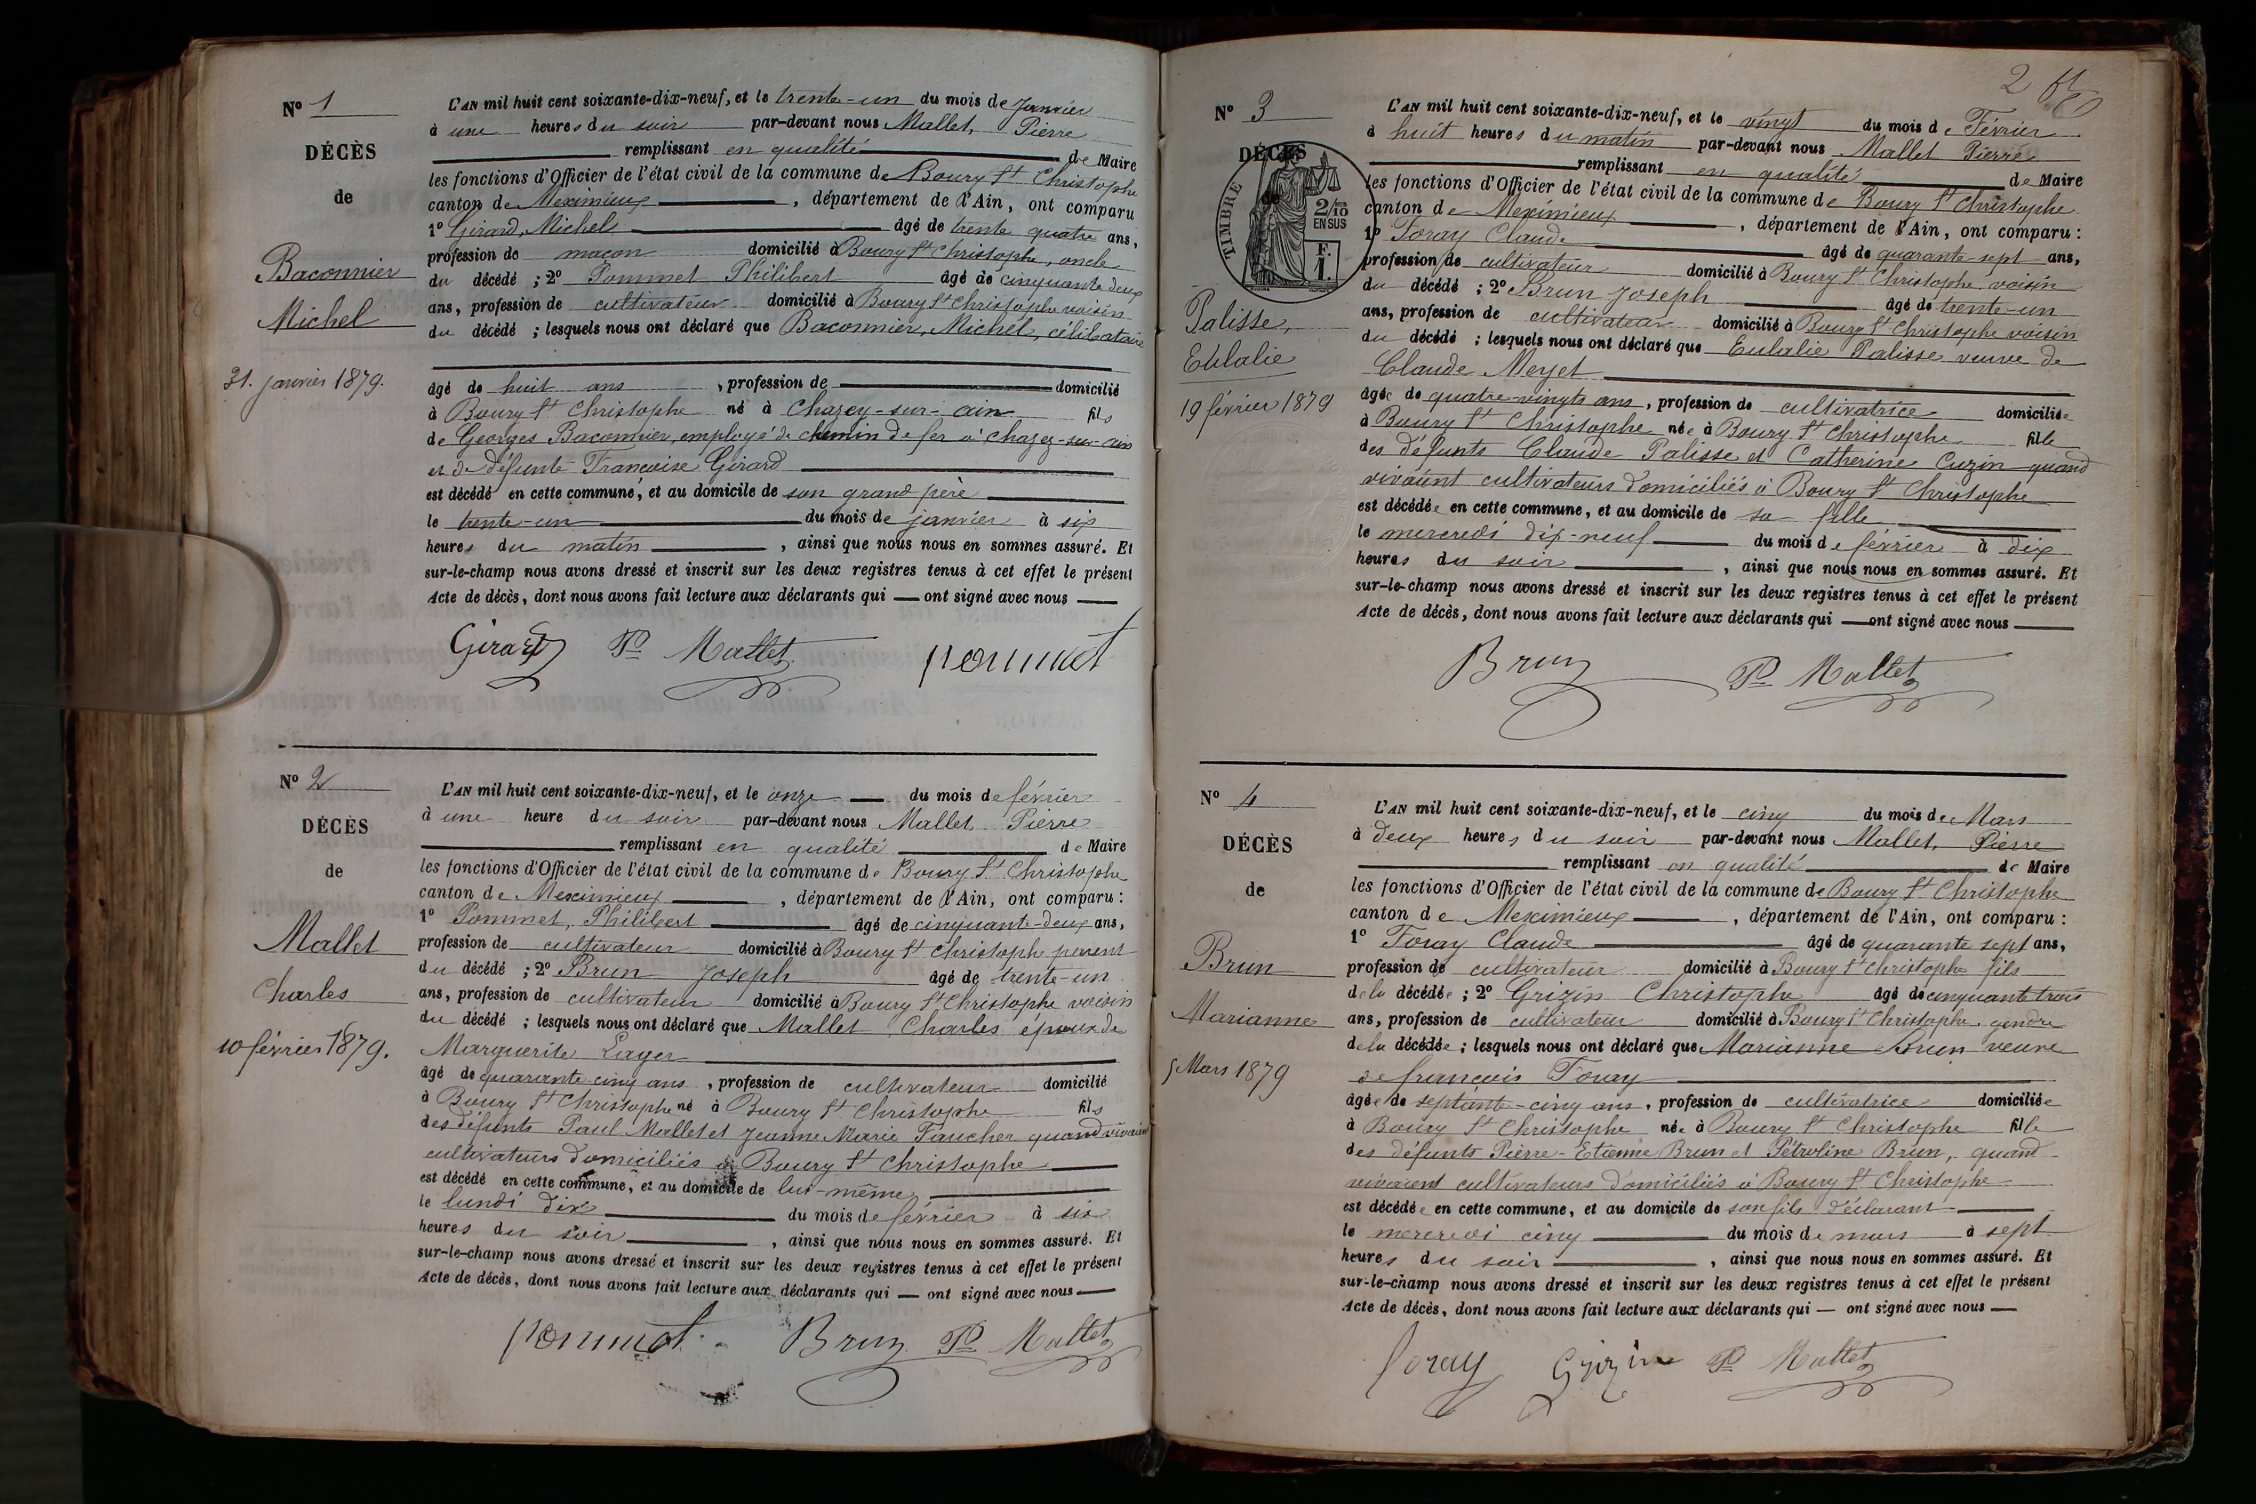 N° 1
DÉCÈS
de
Baconnier
Michel
31. janvier 1879.
L'AN mil huit cent soixante-dix-neuf, et le trente-un du mois de Janvier
à une heures du soir par-devant nous Mallet, Pierre
remplissant en qualité de Maire
les fonctions d'Officier de l'état civil de la commune de Boury St Christophe
canton de Meximieux, département de l'Ain, ont comparu
1° Girard, Michel âgé de trente quatre ans,
profession de maçon domicilié à Boury St Christophe, oncle
du décédé ; 2° Pommet Philibert âgé de cinquante deux
ans, profession de cultivateur domicilié à Boury St Christophe voisin
du décédé ; lesquels nous ont déclaré que Baconnier, Michel, célibataire
âgé de huit ans, profession de domicilié
à Boury St Christophe né à Chazey-sur-ain fils
de Georges Baconnier, employé de chemin de fer à chazey-sur-ain
et de défunte Françoise Girard
est décédé en cette commune, et au domicile de son grand père
le trente-un du mois de janvier à six
heures du matin, ainsi que nous nous en sommes assuré. Et
sur-le-champ nous avons dressé et inscrit sur les deux registres tenus à cet effet le présent
Acte de décès, dont nous avons fait lecture aux déclarants qui — ont signé avec nous —
Girard P. Mallet Pommet
N° 2
DÉCÈS
de
Mallet
Charles
10 février 1879.
L'AN mil huit cent soixante-dix-neuf, et le onze — du mois de février
à une heure du soir par-devant nous Mallet Pierre
remplissant en qualité de Maire
les fonctions d'Officier de l'état civil de la commune de Boury St Christophe
canton de Meximieux, département de l'Ain, ont comparu :
1° Pommet, Philibert âgé de cinquante-deux ans,
profession de cultivateur domicilié à Boury St Christophe parent
du décédé ; 2° Brun Joseph âgé de trente-un
ans, profession de cultivateur domicilié à Boury St Christophe voisin
du décédé ; lesquels nous ont déclaré que Mallet Charles époux de
Marguerite Layer
âgé de quarante cinq ans, profession de cultivateur domicilié
à Boury St Christophe né à Boury St Christophe fils
des défunts Paul Mallet et Jeanne Marie Faucher quand vivaient
cultivateurs domiciliés à Boury St Christophe
est décédé en cette commune, et au domicile de lui-même
le lundi dix du mois de février à six
heures du soir, ainsi que nous nous en sommes assuré. Et
sur-le-champ nous avons dressé et inscrit sur les deux registres tenus à cet effet le présent
Acte de décès, dont nous avons fait lecture aux déclarants qui — ont signé avec nous —
Pommet Brun P. Mallet
2
N° 3
DÉCÈS
de
TIMBRE
2/10
EN SUS
F.
1.
Palisse,
Eulalie
19 février 1879
L'AN mil huit cent soixante-dix-neuf, et le vingt du mois de Février
à huit heures du matin par-devant nous Mallet Pierre
remplissant en qualité de Maire
les fonctions d'Officier de l'état civil de la commune de Boury St Christophe
canton de Meximieux, département de l'Ain, ont comparu :
1° Foray Claude âgé de quarante sept ans,
profession de cultivateur domicilié à Boury St Christophe, voisin
du décédé ; 2° Brun Joseph âgé de trente-un
ans, profession de cultivateur domicilié à Boury St Christophe voisin
du décédé ; lesquels nous ont déclaré que Eulalie Palisse veuve de
Claude Merjet
âgée de quatre-vingts ans, profession de cultivatrice domiciliée
à Boury St Christophe née à Boury St Christophe fille
des défunts Claude Palisse et Catherine Cuzin quand
vivaient cultivateurs domiciliés à Boury St Christophe
est décédée en cette commune, et au domicile de sa fille
le mercredi dix-neuf du mois de février à dix
heures du soir, ainsi que nous nous en sommes assuré. Et
sur-le-champ nous avons dressé et inscrit sur les deux registres tenus à cet effet le présent
Acte de décès, dont nous avons fait lecture aux déclarants qui — ont signé avec nous —
Brun P. Mallet
N° 4
DÉCÈS
de
Brun
Marianne
5 Mars 1879
L'AN mil huit cent soixante-dix-neuf, et le cinq du mois de Mars
à deux heures du soir par-devant nous Mallet, Pierre
remplissant en qualité de Maire
les fonctions d'Officier de l'état civil de la commune de Boury St Christophe
canton de Meximieux, département de l'Ain, ont comparu :
1° Foray Claude âgé de quarante sept ans,
profession de cultivateur domicilié à Boury St Christophe fils
de la décédée ; 2° Grizin Christophe âgé de cinquante trois
ans, profession de cultivateur domicilié à Boury St Christophe gendre
de la décédée ; lesquels nous ont déclaré que Marianne Brun veuve
de françois Foray
âgée de septante-cinq ans, profession de cultivatrice domiciliée
à Boury St Christophe née à Boury St Christophe fille
des défunts Pierre-Etienne Brun et Pétroline Brun, quand
vivaient cultivateurs domiciliés à Boury St Christophe
est décédée en cette commune, et au domicile de son fils déclarant
le mercredi cinq du mois de mars à sept
heures du soir, ainsi que nous nous en sommes assuré. Et
sur-le-champ nous avons dressé et inscrit sur les deux registres tenus à cet effet le présent
Acte de décès, dont nous avons fait lecture aux déclarants qui — ont signé avec nous —
Foray Grizin P. Mallet